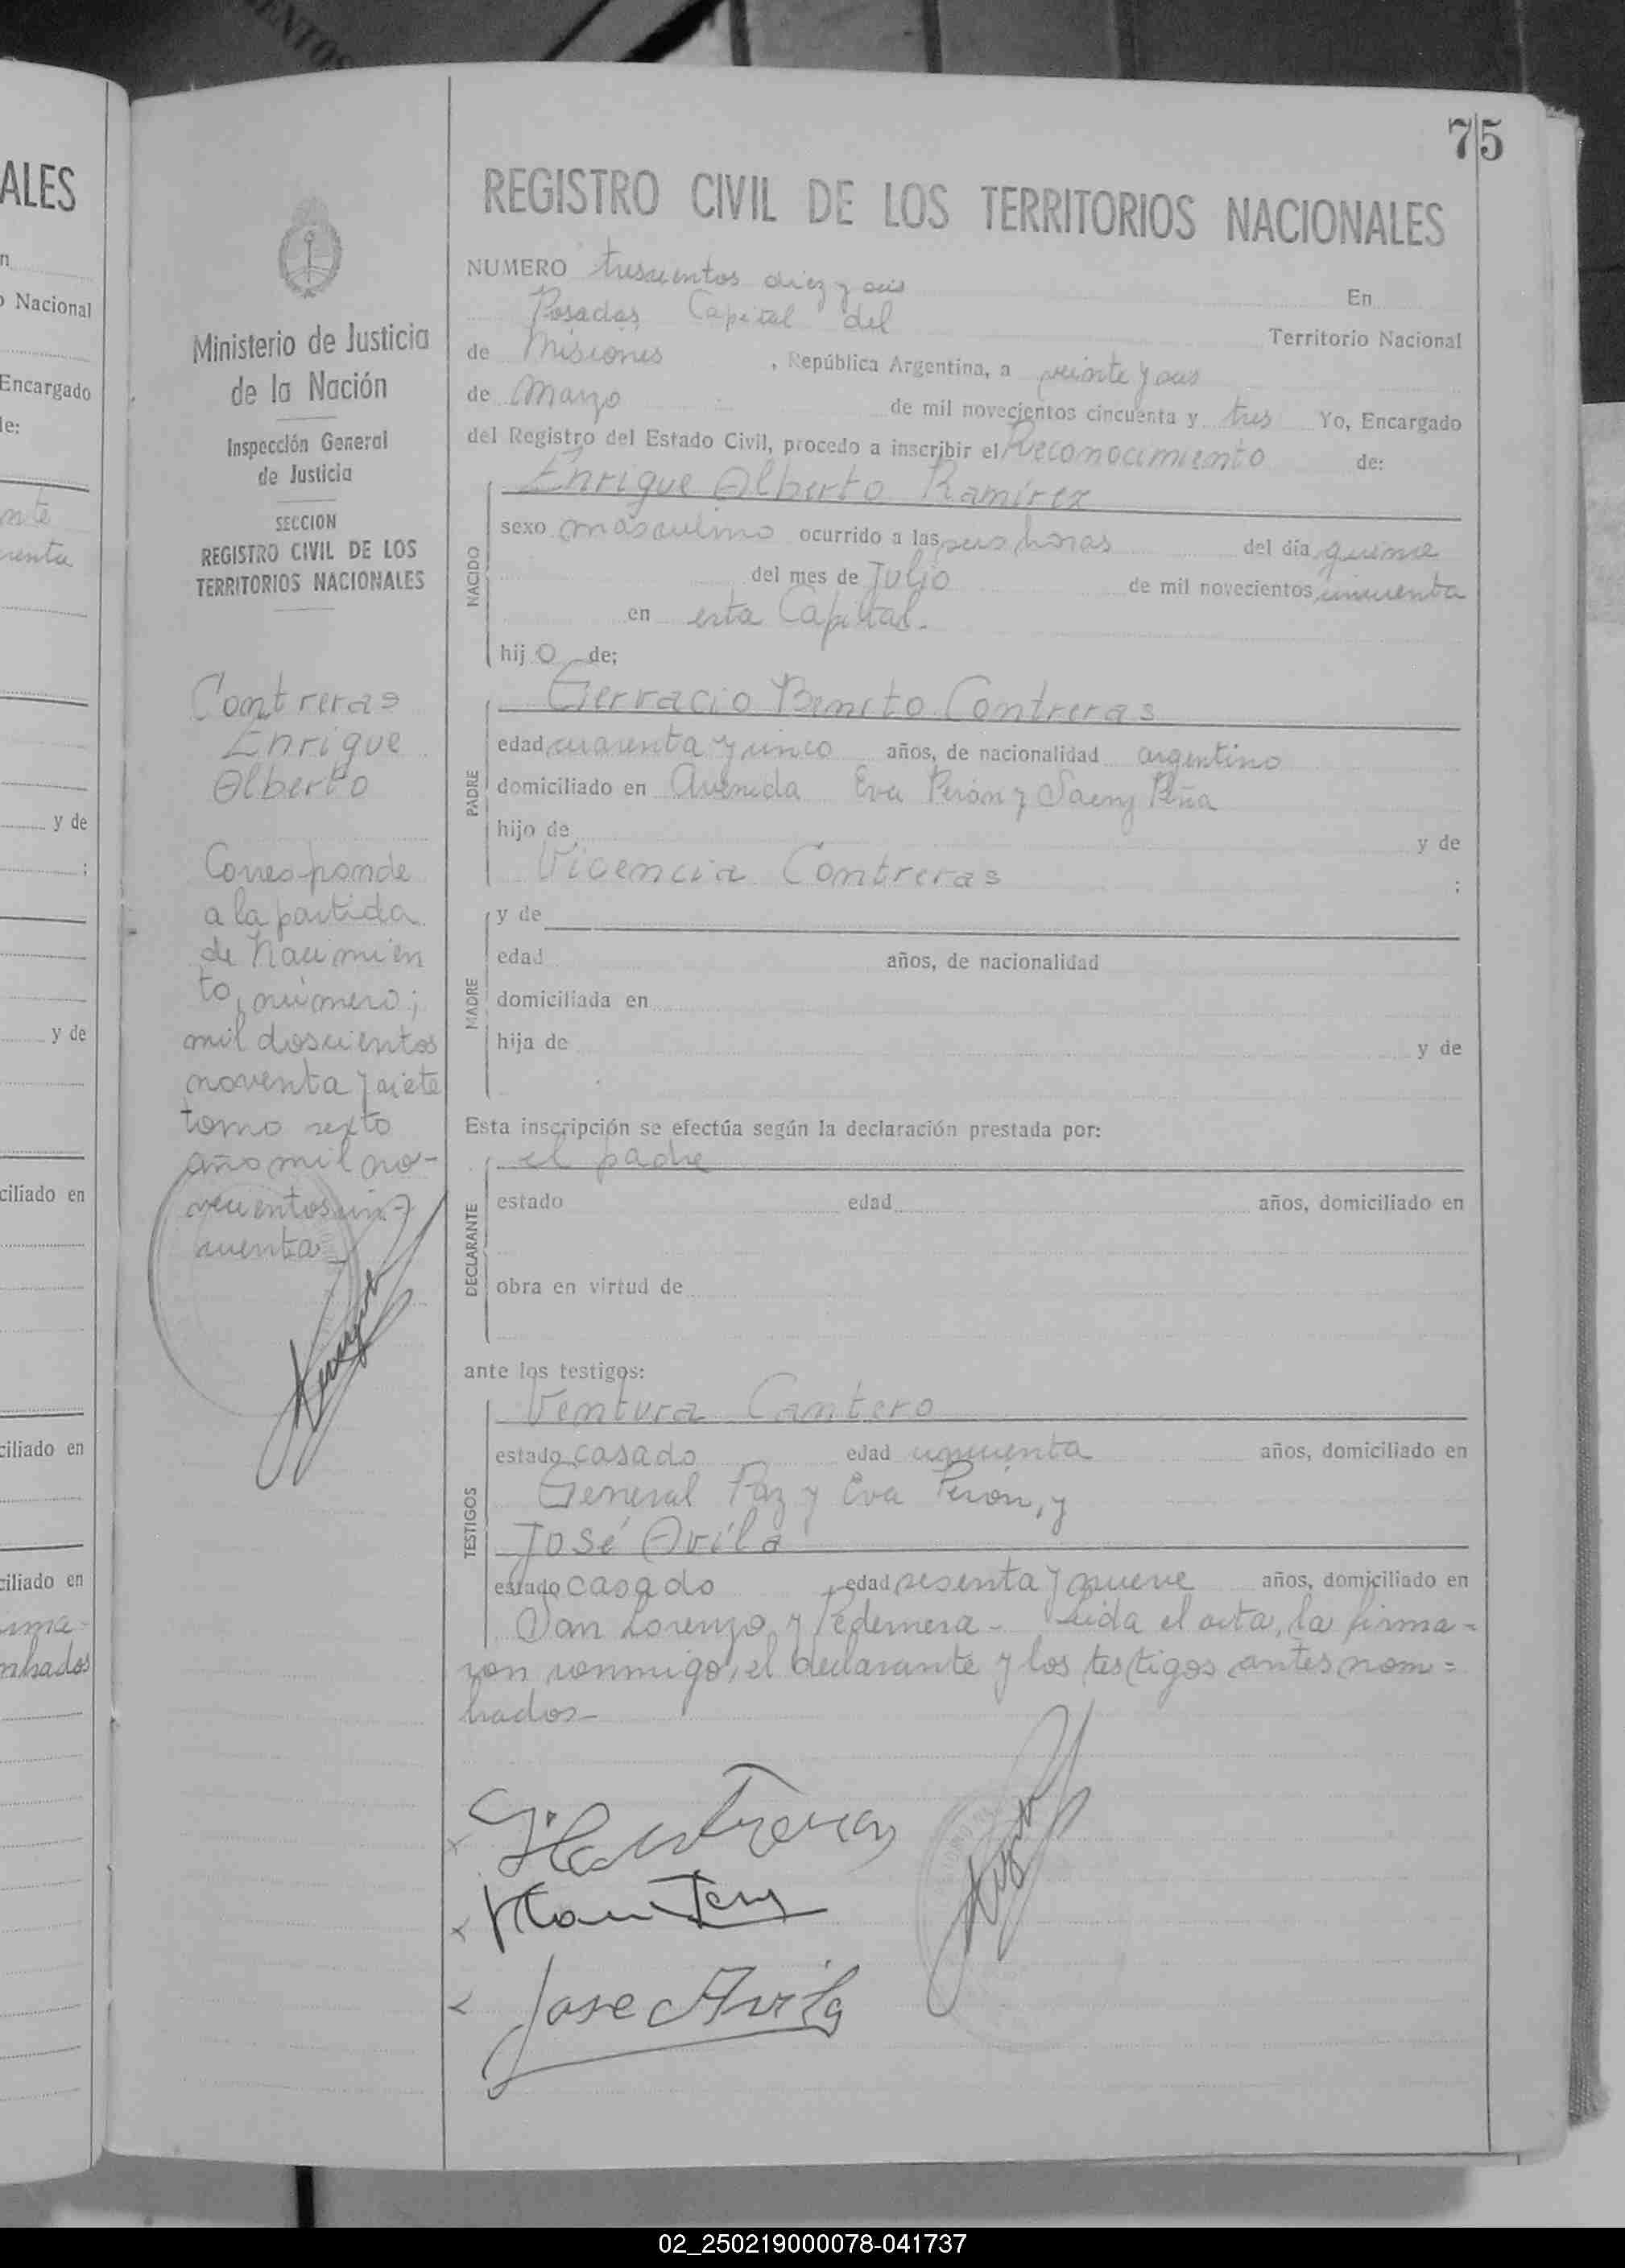 ENTOS
75
ALES
n
o Nacional
Encargado
le:
nte
uenta
y de
;
y de
ciliado en
ciliado en
ciliado en
nbrados
Ministerio de Justicia
de la Nación
Inspección General
de Justicia
SECCION
REGISTRO CIVIL DE LOS
TERRITORIOS NACIONALES
Contreras
Enrique
Alberto
Corresponde
a la partida
de Nacimien
to, número;
mil doscientos
noventa y siete
tomo sexto
año mil no-
vecientos cin-
cuenta
REGISTRO CIVIL DE LOS TERRITORIOS NACIONALES
NUMERO trescientos diez y seis En
Posadas Capital del Territorio Nacional
de Misiones , República Argentina, a veinte y seis
de Marzo de mil novecientos cincuenta y tres Yo, Encargado
del Registro del Estado Civil, procedo a inscribir el Reconocimiento de:
Enrique Alberto Ramírez
NACIDO
sexo masculino ocurrido a las seis horas del día quince
del mes de Julio de mil novecientos cincuenta
en esta Capital.-
hijo de;
Gervacio Benito Contreras
PADRE
edad cuarenta y cinco años, de nacionalidad argentino
domiciliado en Avenida Eva Perón y Saenz Peña
hijo de y de
Vicencia Contreras ;
MADRE
y de
edad años, de nacionalidad
domiciliada en
hija de y de
Esta inscripción se efectúa según la declaración prestada por:
el padre
DECLARANTE
estado edad años, domiciliado en
obra en virtud de
ante los testigos:
Ventura Cantero
TESTIGOS
estado casado edad cincuenta años, domiciliado en
General Paz y Eva Perón, y
José Avíla
estado casado edad sesenta y nueve años, domiciliado en
San Lorenzo y Pedernera - Leida el acta, la firma=
ron conmigo, el declarante y los testigos antes nom=
brados-
Jose Avila
02_250219000078-041737